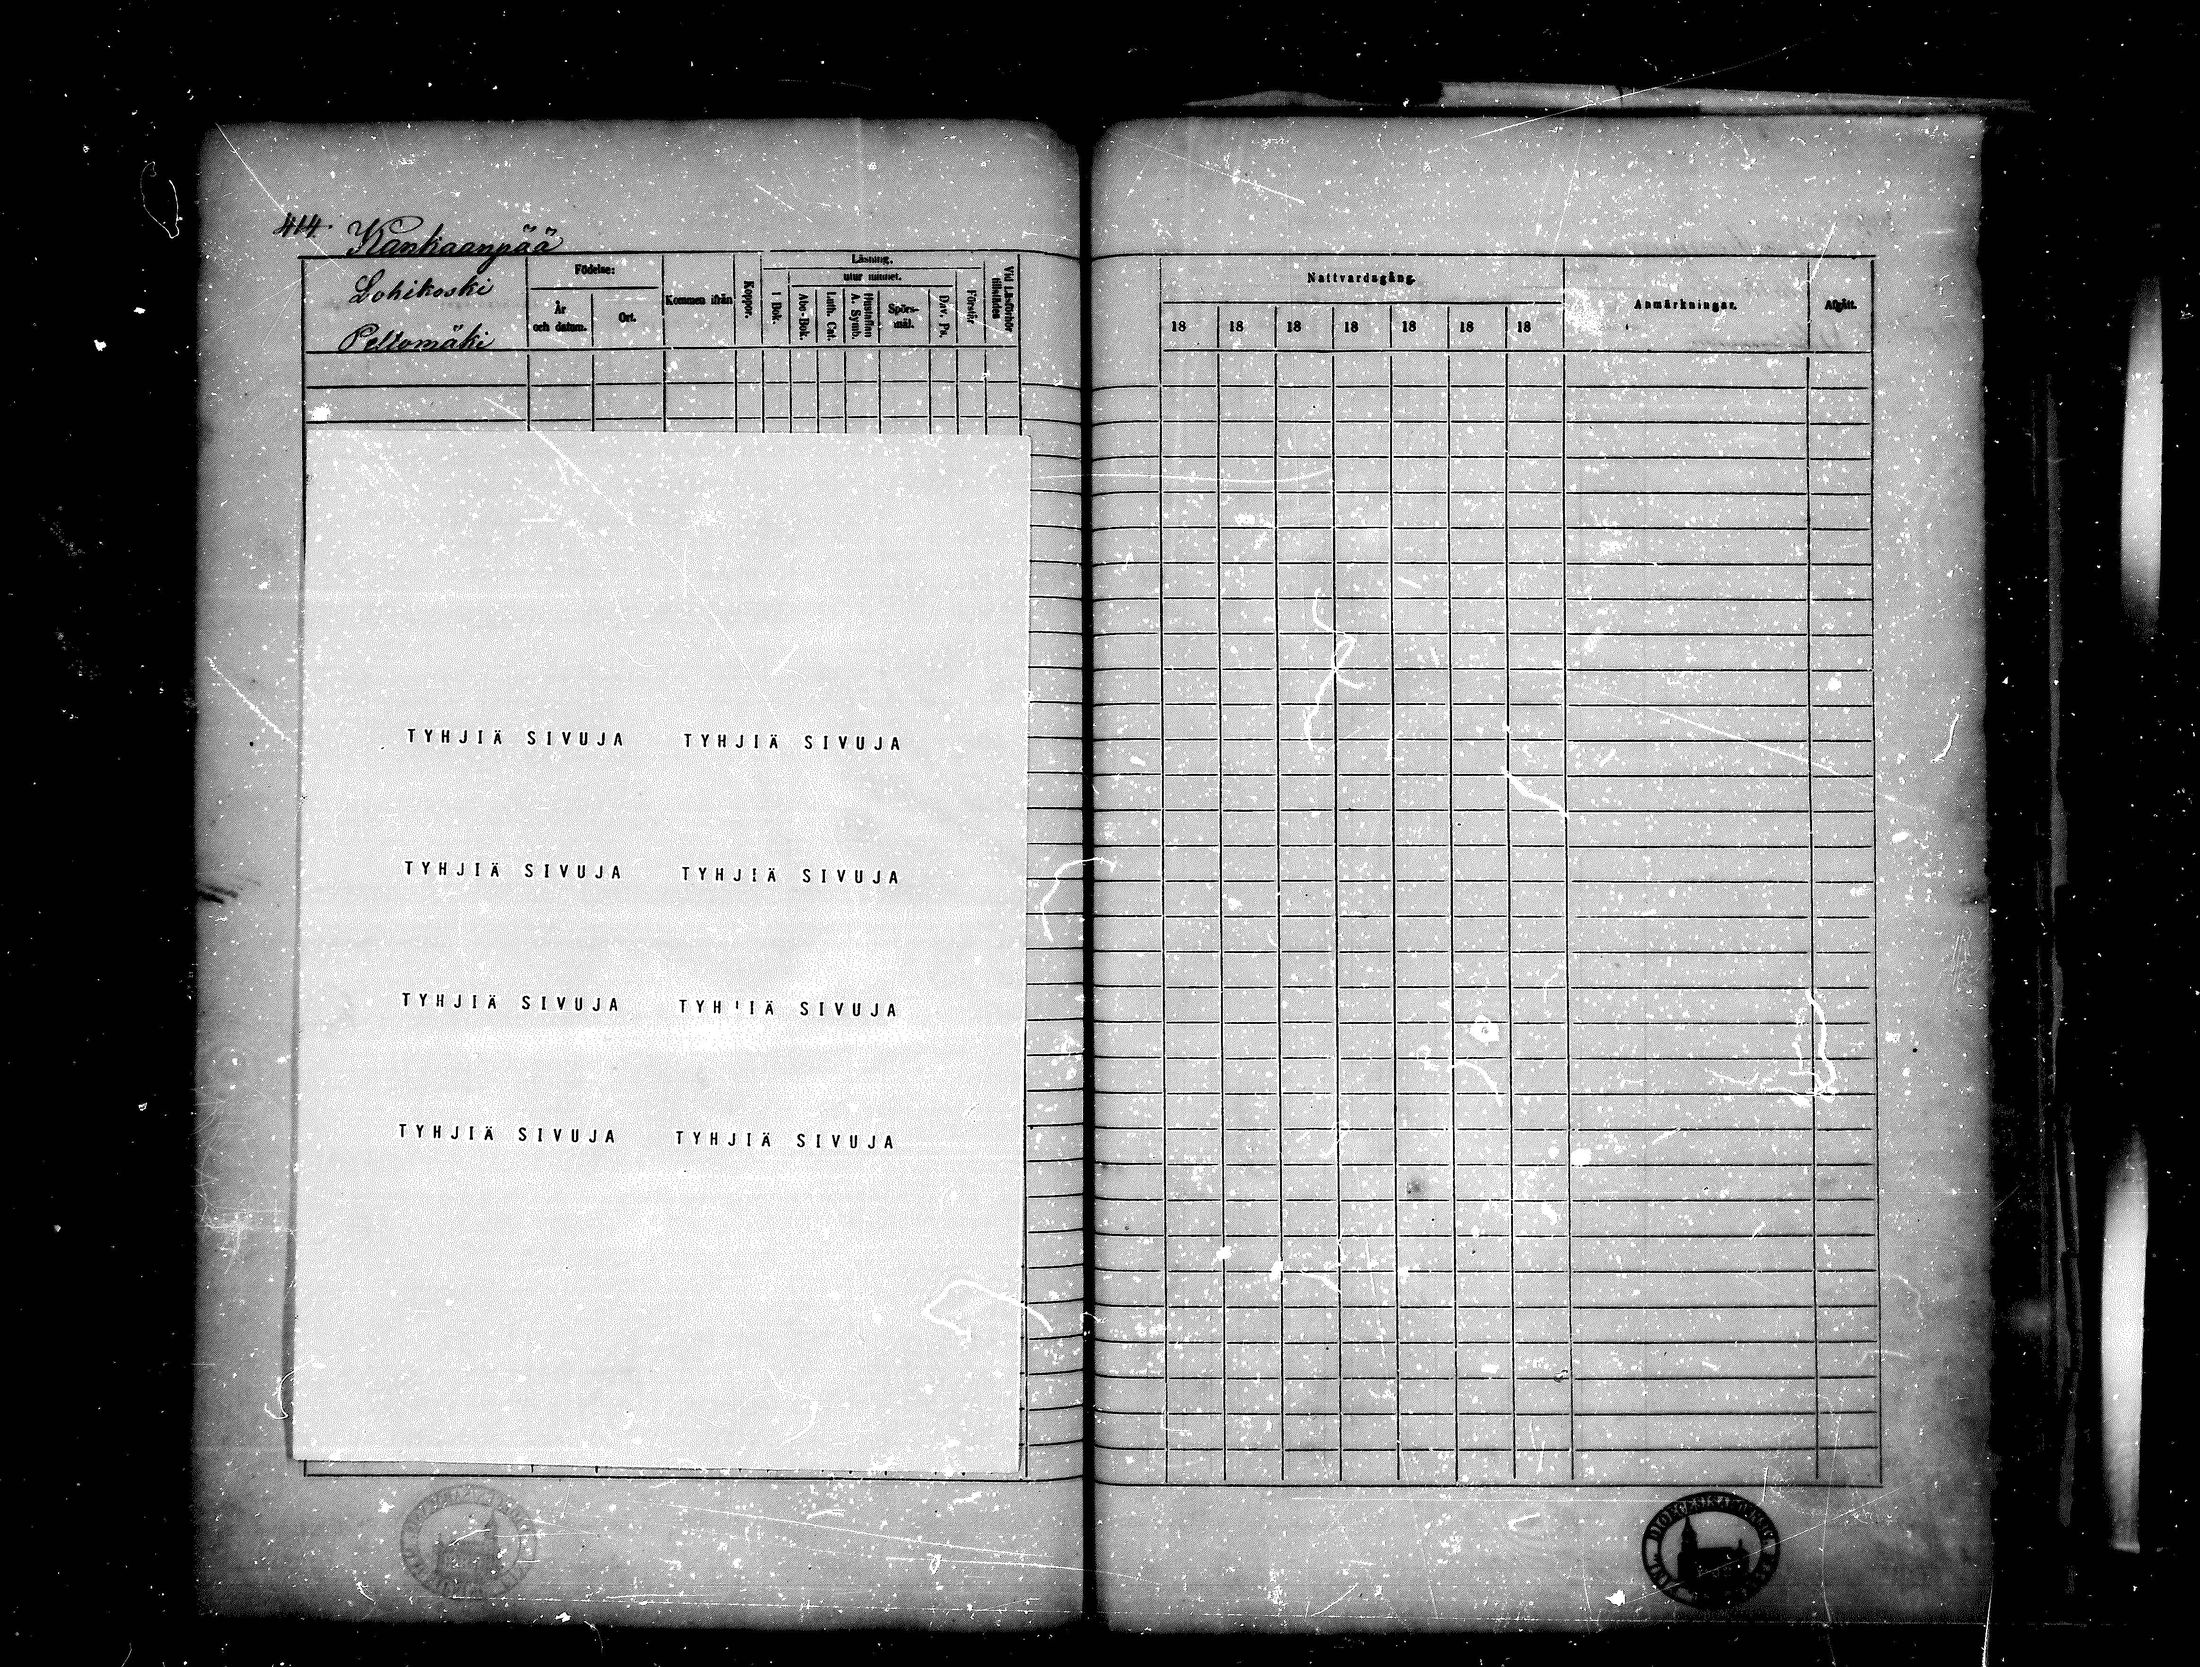 414. Kankaanpää
Lohikoski
Peltomäki
Födelse:
År
och datum.
Ort.
Kommen ifrån
Koppor.
Läsning,
utur minnet.
I Bok.
Abc-Bok.
Luth. Cat.
Hustaflan
A. Symb.
Spörs-
mål.
Dav. Ps.
Förstår
Vid Läsförhör
tillstädes
Nattvardsgång.
18 18 18 18 18 18 18
Anmärkningar.
Afgått.
TYHJIÄ SIVUJA TYHJIÄ SIVUJA
TYHJIÄ SIVUJA TYHJIÄ SIVUJA
TYHJIÄ SIVUJA TYHJIÄ SIVUJA
TYHJIÄ SIVUJA TYHJIÄ SIVUJA